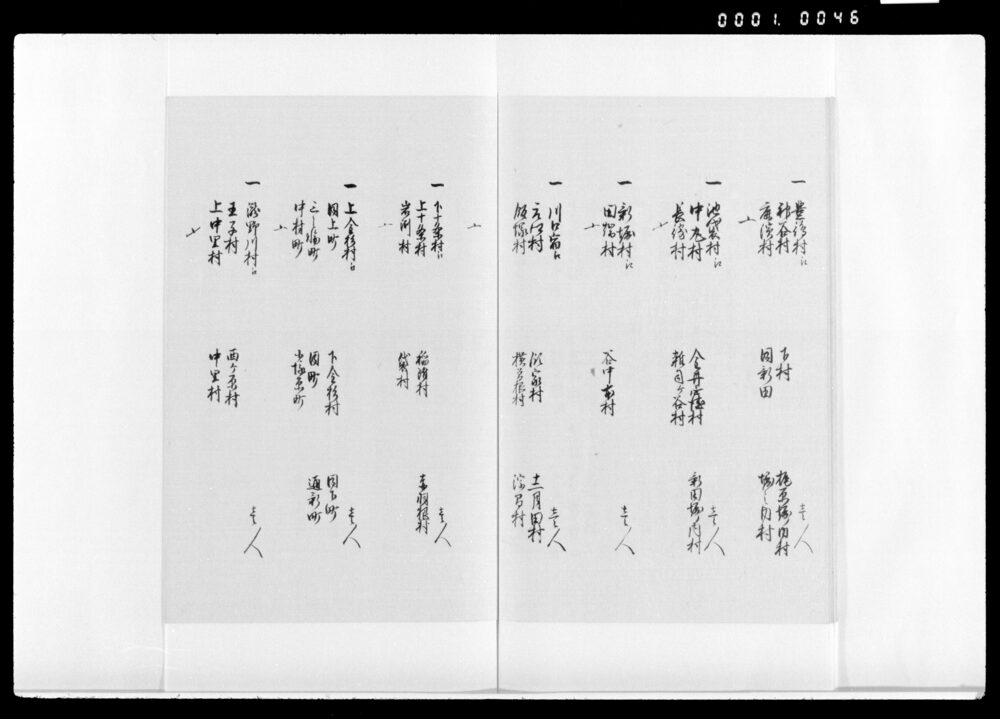 0001. 0046
一 豊嶋村江 下村 梶原堀之内村 壱人
神谷村 同新田 堀之内村
一 池袋村江 金井窪村 新田堀之内村 壱人
中丸村 雑司ヶ谷村
長崎村
一 新堀村江 谷中本村 壱人
田端村
一 川口宿江 十二月田村 壱人
元江村 横曽根村
飯塚村
一 下十条村江 稲付村 赤羽根村 壱人
上十条村 袋村
岩渕村
一 上金杉村江 下金杉村 同下町 壱人
同上町 同町 通新町
三之輪町 小塚原町
中村町
一 滝野川村江 西ヶ原村 壱人
王子村 中里村
上中里村